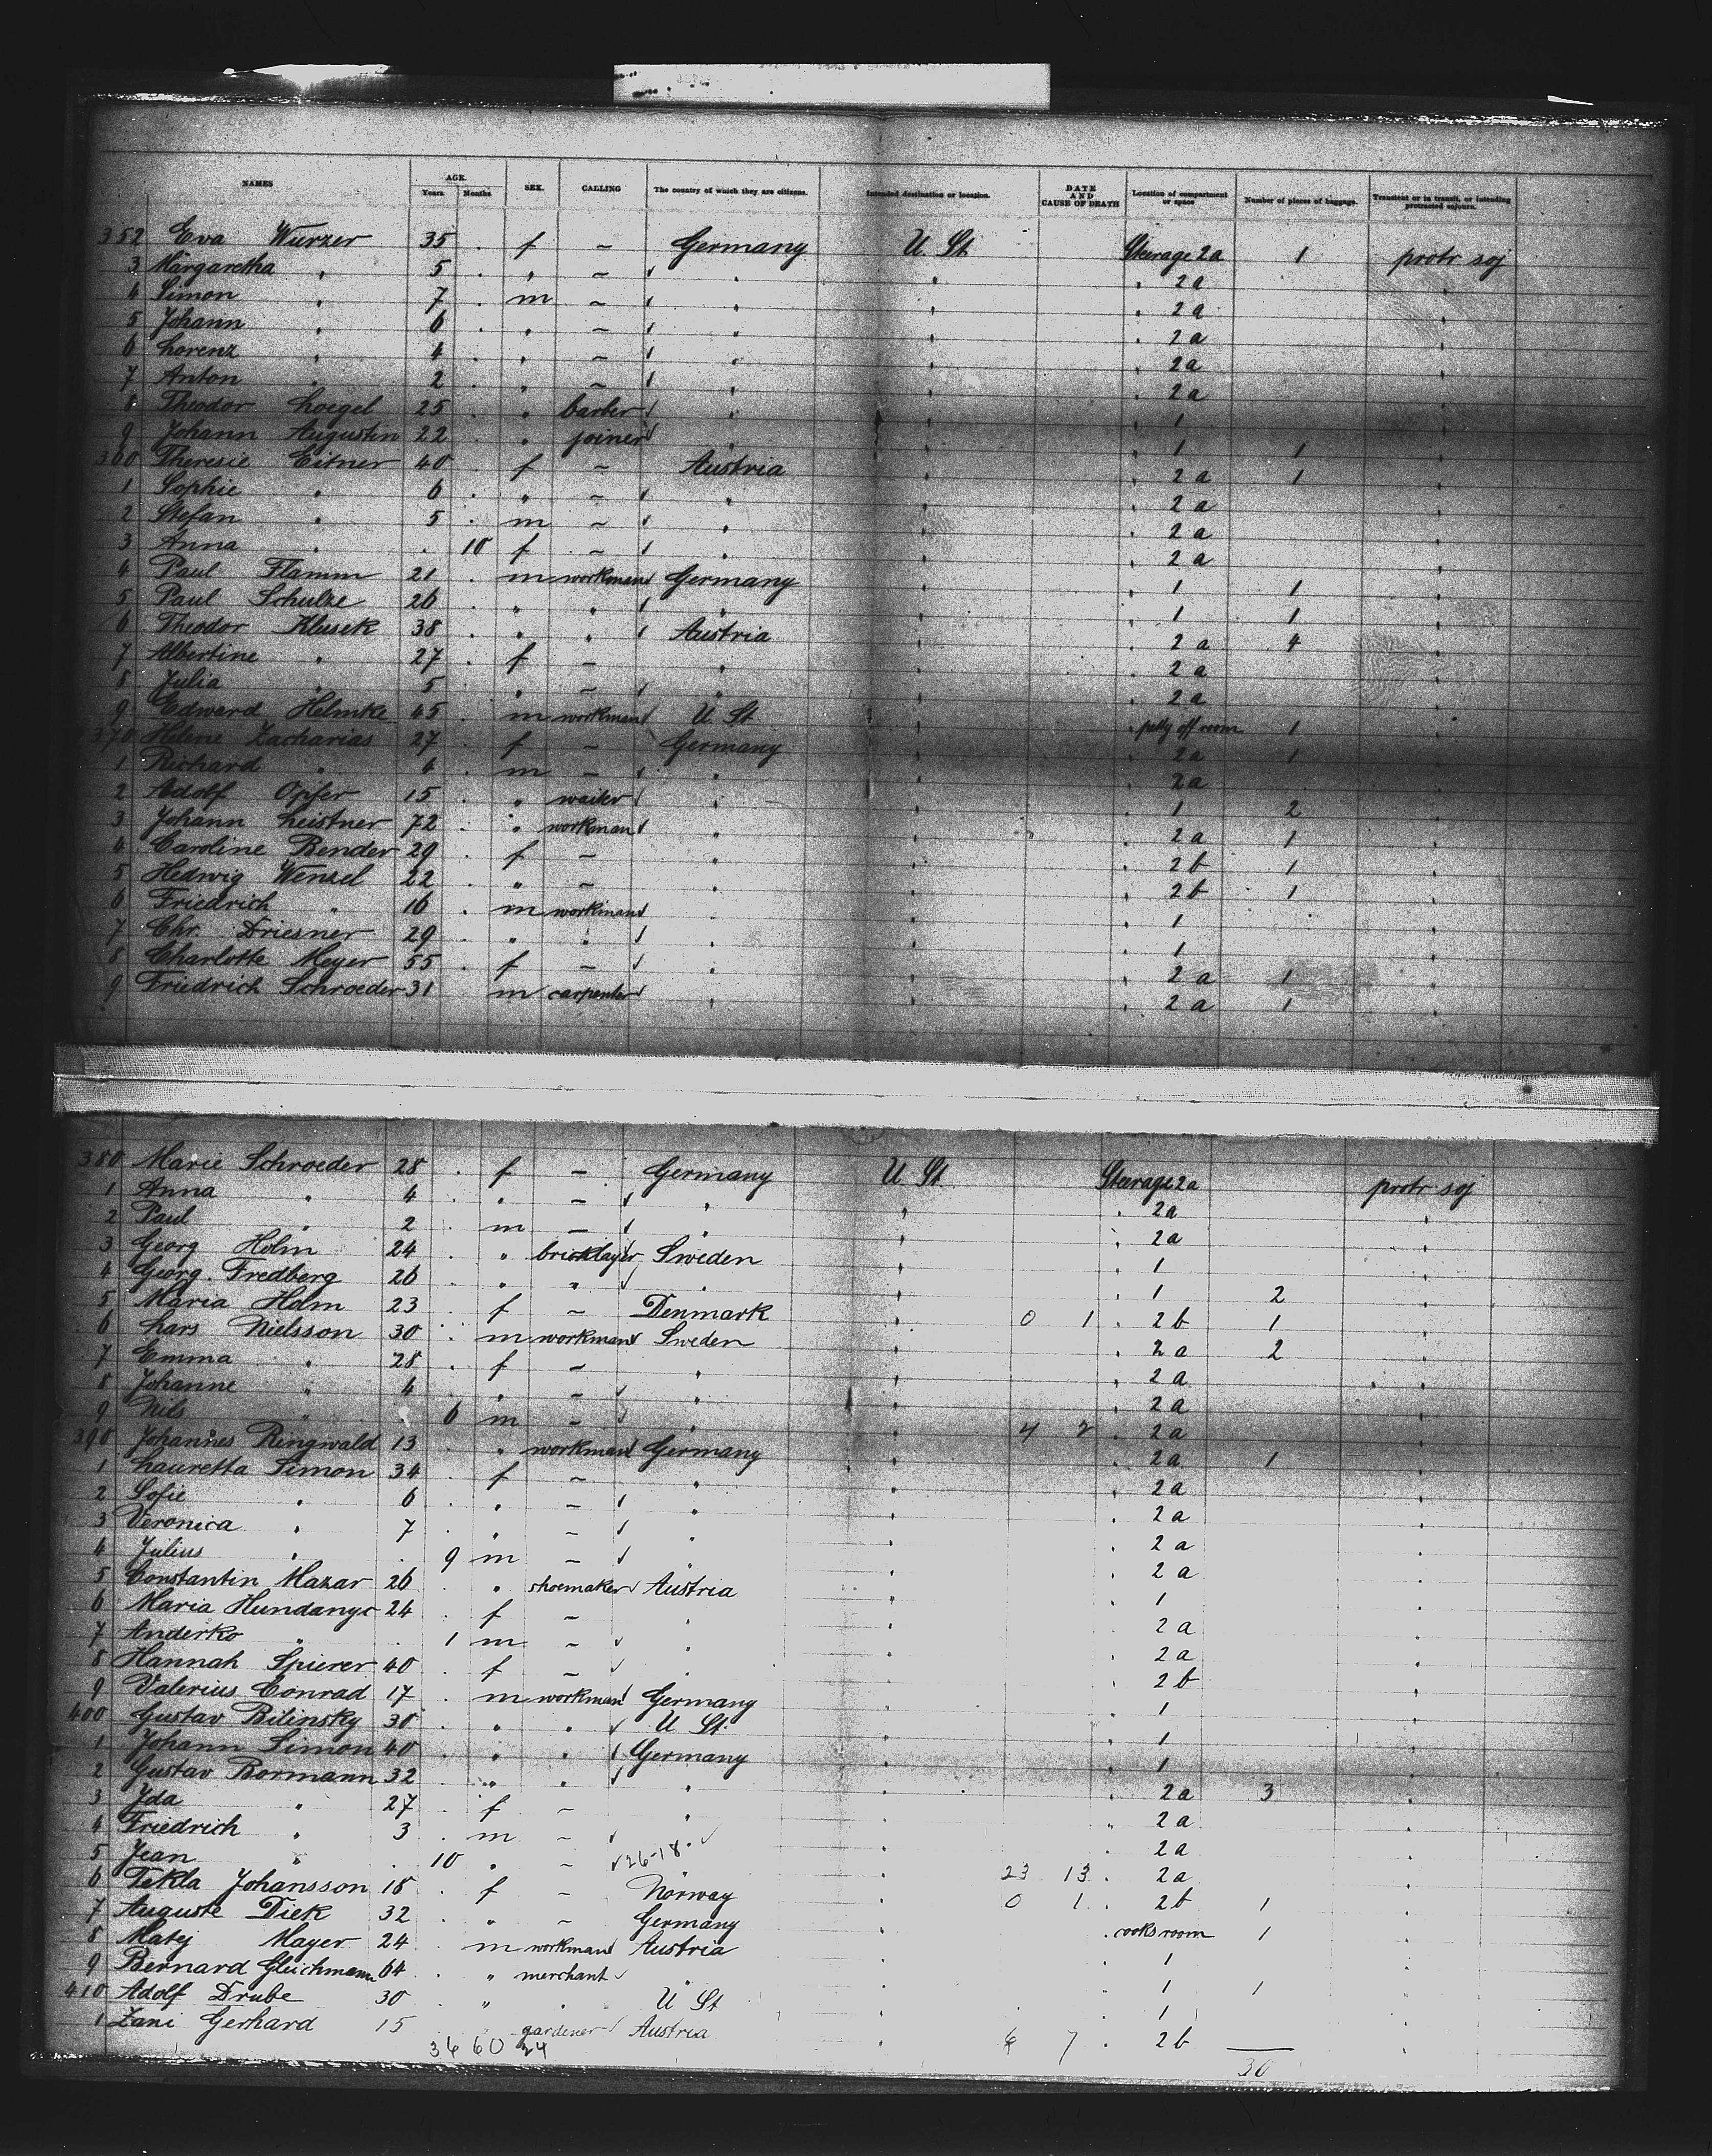 NAMES AGE. Years. Months. SEX. CALLING The country of which they are citizens. Intended destination or location. DATE AND CAUSE OF DEATH Location of compartment or space Number of pieces of baggage. Transient or in transit, or intending protracted sojourn.
352 Eva Wurzer 35 . f – Germany U. St. Steerage 2a 1 protr soj
3 Margaretha " 5 . " – " " " 2a "
4 Simon " 7 . m – " " " 2a "
5 Johann " 6 . " – " " " 2a "
6 Lorenz " 4 . " – " " " 2a "
7 Anton " 2 . " – " " " 2a "
8 Theodor Loegel 25 . " barber " " " 1 "
9 Johann Augustin 22 . " joiner " " " 1 1 "
360 Theresie Eitner 40 . f – Austria " " 2a 1 "
1 Sophie " 6 . " – " " " 2a "
2 Stefan " 5 . m – " " " 2a "
3 Anna " . 10 f – " " " 2a "
4 Paul Flamm 21 . m workman Germany " " 1 1 "
5 Paul Schulze 26 . " " " " " 1 1 "
6 Theodor Klusek 38 . " " Austria " " 2a 4 "
7 Albertine " 27 . f – " " " 2a "
8 Julia " 5 . " – " " " 2a "
9 Edward Helmke 45 . m workman U. St. " " petty off room 1 "
370 Helene Zacharias 27 . f – Germany " " 2a 1 "
1 Richard " 4 . m – " " " 2a "
2 Adolf Opfer 15 . " waiter " " " 1 2 "
3 Johann Leistner 72 . " workman " " " 2a 1 "
4 Caroline Bender 29 . f – " " " 2b 1 "
5 Hedwig Wenzel 22 . " – " " " 2b 1 "
6 Friedrich " 16 . m workman " " " 1 "
7 Chr. Driesner 29 . " " " " " 1 "
8 Charlotte Meyer 55 . f – " " " 2a 1 "
9 Friedrich Schroeder 31 . m carpenter " " " 2a 1 "
380 Marie Schroeder 28 . f – Germany U. St. Steerage 2a protr soj
1 Anna " 4 . " – " " " 2a "
2 Paul " 2 . m – " " " 2a "
3 Georg Holm 24 . " bricklayer Sweden " " 1 "
4 Georg Fredberg 26 . " " " " " 1 2 "
5 Maria Holm 23 . f – Denmark " 0 1 " 2b 1 "
6 Lars Nielsson 30 . m workman Sweden " " 2a 2 "
7 Emma " 28 . f – " " " 2a "
8 Johanne " 4 . " – " " " 2a "
9 Nils " 6 m – " " 4 2 " 2a "
390 Johannes Ringwald 13 . " workman Germany " " 2a 1 "
1 Lauretta Simon 34 . f – " " " 2a "
2 Sofie " 6 . " – " " " 2a "
3 Veronica " 7 . " – " " " 2a "
4 Julius " . 9 m – " " " 2a "
5 Constantin Mazar 26 . " shoemaker Austria " " 1 "
6 Maria 24 . f – " " " 2a "
7 Anderko " . 1 m – " " " 2a "
8 Hannah Spierer 40 . f – " " " 2b "
9 Valerius Conrad 17 . m workman Germany " " 1 "
400 Gustav Bilinsky 30 . " " U. St. " " 1 "
1 Johann Simon 40 . " " Germany " " 1 "
2 Gustav Bormann 32 . " " " " " 2a 3 "
3 Ida " 27 . f – " " " 2a "
4 Friedrich " 3 . m – " " " 2a "
5 Jean " . 10 " – 26-18 " 23 13 " 2a "
6 Tekla Johansson 18 . f – Norway " 0 1 " 2b 1 "
7 Auguste Diek 32 . " – Germany " " cooks room 1 "
8 Matej Mayer 24 . m workman Austria " " 1 "
9 Bernard Gleichmann 64 . " merchant " " " 1 1 "
410 Adolf Drube 30 . " " U. St. " " 1 "
1 Zani Gerhard 15 " gardener Austria " 4 7 " 2b "
34 60 24 30